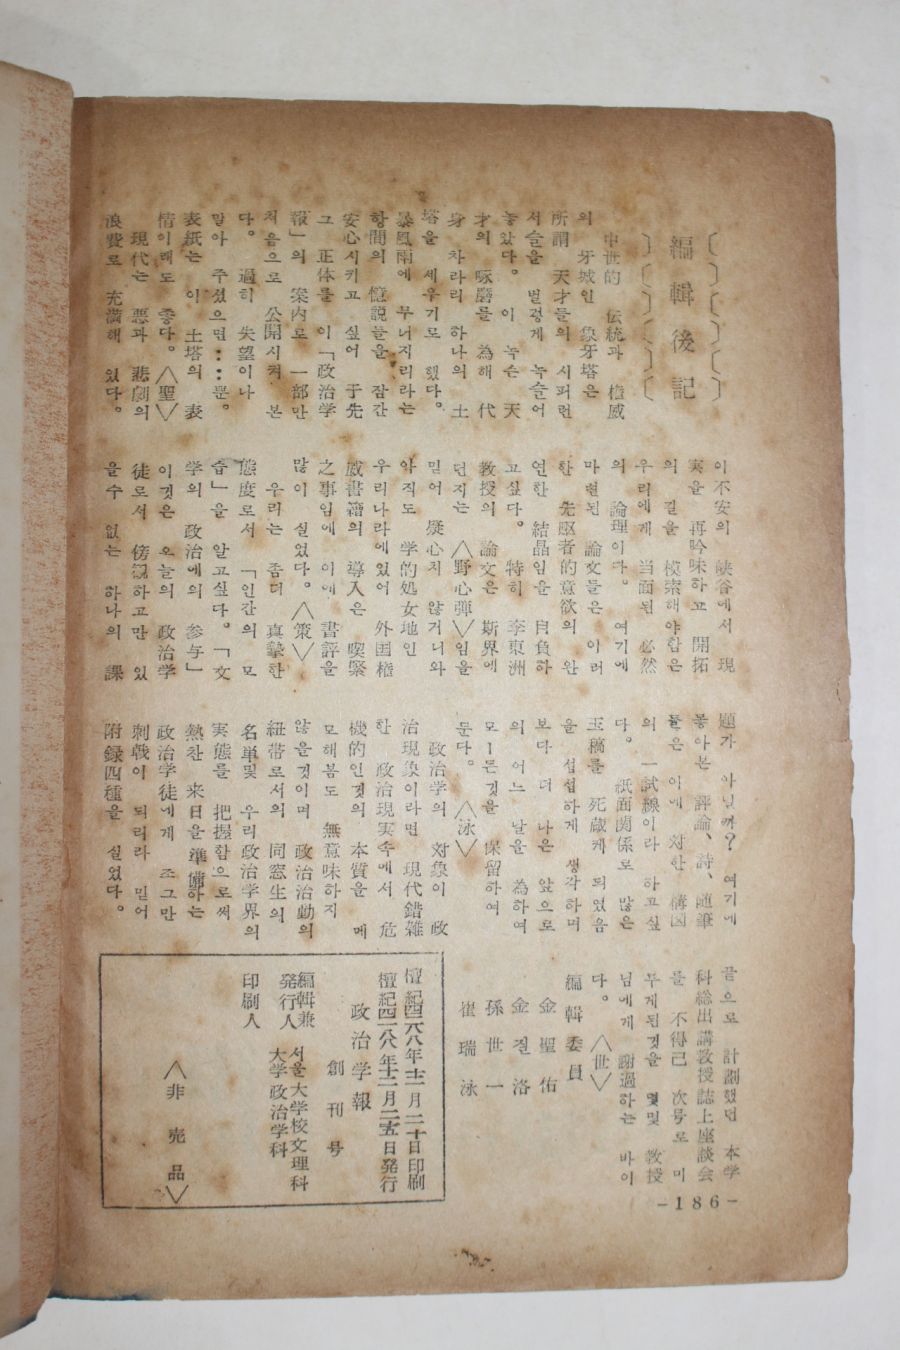 編輯後記
中世的 伝統과 権威
의 牙城인 象牙塔은
所謂 天才들의 시퍼런
서슬을 벌겋게 녹슬어
놓았다。이 녹슨 天
才의 啄磨를 為해 代
身 차라리 하나의 土
塔을 세우기로 했다。
暴風雨에 무너지리라는
항間의 憶説들을 잠간
安心시키고 싶어 于先
그 正体를 이「政治学
報」의 案内로 一部만
처음으로 公開시켜 본
다。過히 失望이나
말아 주셨으면‥‥뿐。
表紙는 이 土塔의 表
情이래도 좋다。〈聖〉
現代는 悪과 悲劇의
浪費로 充満해 있다。
이 不安의 峡谷에서 現
実을 再吟味하고 開拓
의 길을 模索해야함은
우리에게 当面된 必然
의 論理이다。여기에
마련된 論文들은 이러
한 先駆者的意欲의 완
연한 結晶임을 自負하
고싶다。特히 李東洲
教授의 論文은 斯界에
던지는 〈野心弾〉임을
믿어 疑心치 않거니와
아직도 学的処女地인
우리나라에있어 外国権
威書籍의 導入은 喫緊
之事임에 이에 書評을
많이 실었다。〈策〉
우리는 좀더 真摯한
態度로서 「인간의 모
습」을 알고싶다。「文
学의 政治에의 参与」
이것은 오늘의 政治学
徒로서 傍観하고만 있
을수 없는 하나의 課
題가 아닐까? 여기에
뽑아본 評論、詩、随筆
들은 이에 対한 構図
의 一試線이라 하고싶
다。紙面関係로 많은
玉稿를 死蔵케 되었음
을 섭섭하게 생각하며
보다 더 나은 앞으로
의 어느 날을 為하여
모ー든것을 保留하여
둔다。〈泳〉
政治学의 対象이 政
治現象이라면 現代錯雑
한 政治現実속에서 危
機的인것의 本質을 메
모해봄도 無意味하지
않을것이며 政治活動의
紐帯로서의 同窓生의
名単및 우리政治学界의
実態를 把握함으로써
熱찬 来日을 準備하는
政治学徒에게 조그만
刺戟이 되리라 믿어
附録四種을 실었다。
끝으로 計劃했던 本学
科総出講教授誌上座談会
를 不得己 次号로 미
루게된것을 몇몇 教授
님에게 謝過하는 바이
다。〈世〉
編輯委員
金聖佑
金질洛
孫世一
崔瑞泳
檀紀四二八八年十二月二十日印刷
檀紀四二八八年十二月二五日発行
政治学報
創刊号
編輯兼 서울大学校文理科
発行人 大学政治学科
印刷人
〈非売品〉
-186-